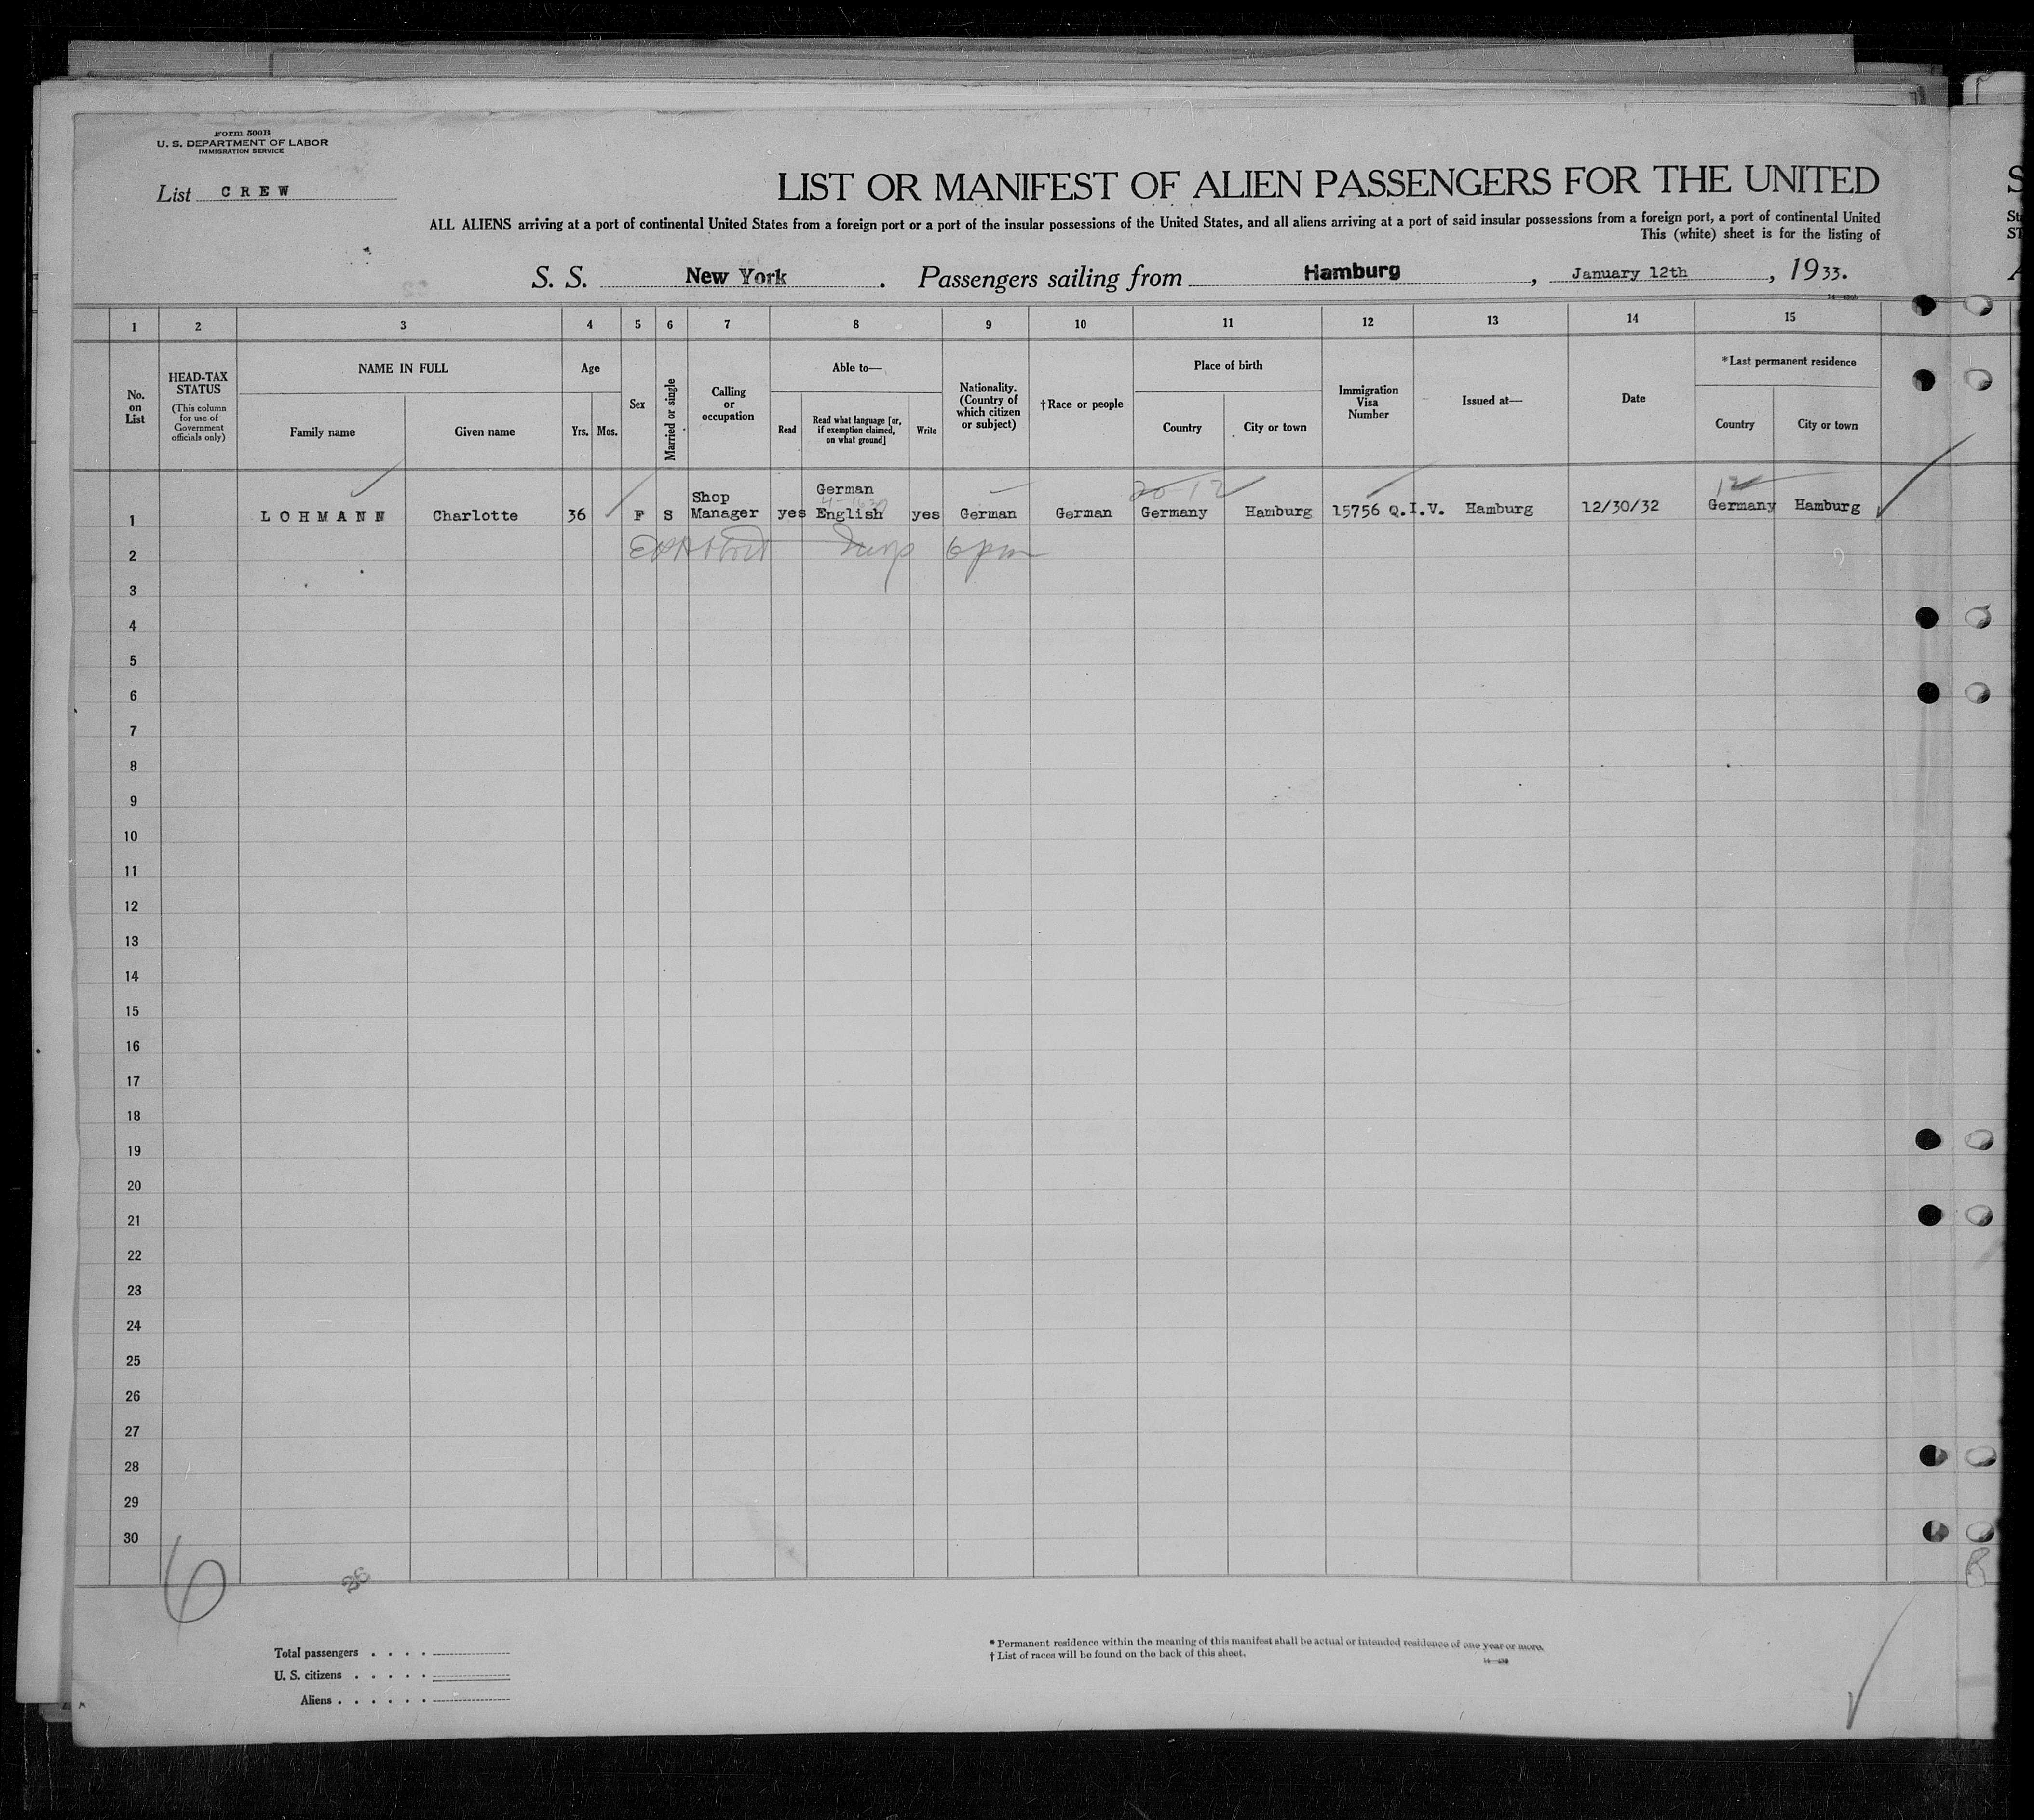 Form 500B
U. S. DEPARTMENT OF LABOR
IMMIGRATION SERVICE
List CREW
LIST OR MANIFEST OF ALIEN PASSENGERS FOR THE UNITED
ALL ALIENS arriving at a port of continental United States from a foreign port or a port of the insular possessions of the United States, and all aliens arriving at a port of said insular possessions from a foreign port, a port of continental United
This (white) sheet is for the listing of
S. S. New York. Passengers sailing from Hamburg, January 12th, 1933.
1 2 3 4 5 6 7 8 9 10 11 12 13 14 15
No. on List
HEAD-TAX STATUS
(This column for use of Government officials only)
NAME IN FULL
Family name
Given name
Age
Yrs. Mos.
Sex
Married or single
Calling or occupation
Able to—
Read
Read what language [or, if exemption claimed, on what ground]
Write
Nationality. (Country of which citizen or subject)
†Race or people
Place of birth
Country
City or town
Immigration Visa Number
Issued at—
Date
*Last permanent residence
Country
City or town
20-12
12
1 LOHMANN Charlotte 36 F S Shop Manager yes German English yes German German Germany Hamburg 15756 Q.I.V. Hamburg 12/30/32 Germany Hamburg
2 6pm
3
4
5
6
7
8
9
10
11
12
13
14
15
16
17
18
19
20
21
22
23
24
25
26
27
28
29
30
6
26
B
Total passengers . . . .
U. S. citizens . . . . .
Aliens . . . . . .
* Permanent residence within the meaning of this manifest shall be actual or intended residence of one year or more.
† List of races will be found on the back of this sheet.